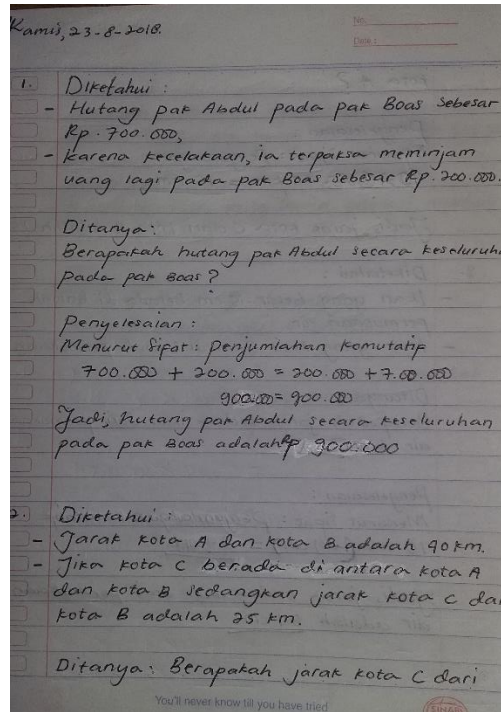 Kamis, 23-8-2018.
No.
Date :
1. Diketahui :
- Hutang pak Abdul pada pak Boas sebesar
Rp. 700.000,
- Karena kecelakaan, ia terpaksa meminjam
uang lagi pada pak Boas sebesar Rp. 200.000.
Ditanya:
Berapakah hutang pak Abdul secara keseluruh
pada pak Boas ?
Penyelesaian :
Menurut Sifat : penjumlahan komutatif
700.000 + 200.000 = 200.000 + 7.00.000
900.000 = 900.000
Jadi, hutang pak Abdul secara keseluruhan
pada pak Boas adalah Rp 900.000
2. Diketahui :
- Jarak kota A dan kota B adalah 40 km.
- Jika kota C berada di antara kota A
dan kota B sedangkan jarak kota C da
kota B adalah 25 km.
Ditanya : Berapakah jarak kota C dari
You'll never know till you have tried
SINAR